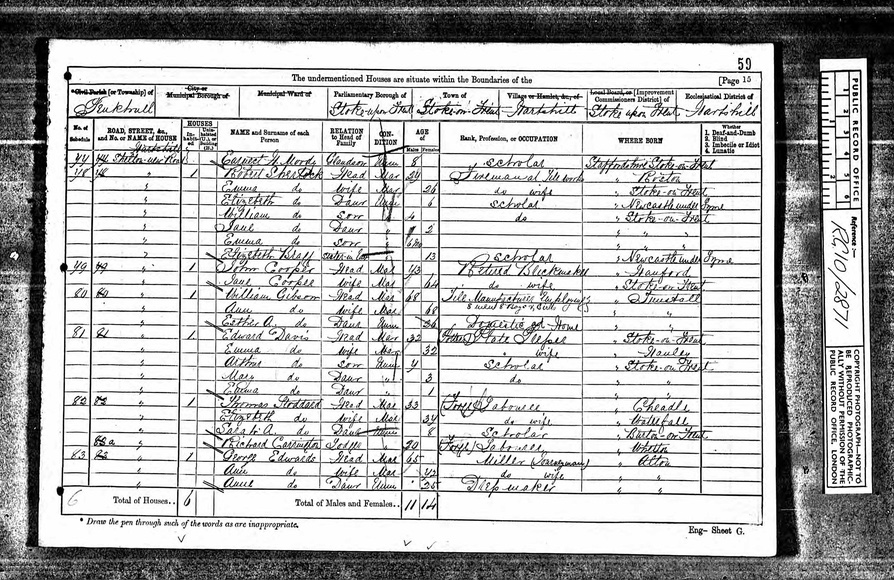 59
The undermentioned Houses are situate within the Boundaries of the [Page 15
*Civil Parish [or Township] of City or Municipal Borough of Municipal Ward of Parliamentary Borough of Town of Village or Hamlet, &c., of Local Board, or [Improvement Commissioners District] of Ecclesiastical District of
Penkhull Stoke upon Trent Stoke-on-Trent Hartshill Stoke upon Trent Hartshill
No. of Schedule ROAD, STREET, &c., and No. or NAME of HOUSE HOUSES Inhabited Uninhabited (U.), or Building (B.) NAME and Surname of each Person RELATION to Head of Family CONDITION AGE of Males Females Rank, Profession, or OCCUPATION WHERE BORN Whether 1. Deaf-and-Dumb 2. Blind 3. Imbecile or Idiot 4. Lunatic
Hartshill
44 Moody Grandson Unm 8 Scholar Staffordshire Stoke-on-Trent
48 48 " 1 Robert Head Mar 29 Fireman at Tile Works "
" Emma do Wife Mar 26 do wife " Stoke-on-Trent
" Elizabeth do Daur Unm 6 scholar " Newcastle under Lyme
" William do son " 4 do " Stoke-on-Trent
" Jane do Daur " 2 " "
" Emma do son "
" Elizabeth 13 scholar " Newcastle under Lyme
49 49 " 1 John Cooper Head Mar 43 Retired Brickmaker " Hanford
" Jane Cooper Wife Mar 64 do wife " Stoke-on-Trent
80 80 " 1 William Gibson Head Mar 68 Tile Manufacturer Employing " Tunstall
" Ann do Wife Mar 68 " "
" Esther A. do Daur Unm 26 Domestic at Home " "
81 81 " 1 Edward Davis Head Mar 32 " Stoke-on-Trent
" Emma do Wife Mar 32 " wife " Hanley
" Arthur do son Unm 4 Scholar " Stoke-on-Trent
" Mary do Daur " 3 do " "
" Emma do Daur " 1 " "
82 82 " 1 Thomas Stoddard Head Mar 33 Labourer " Cheadle
" Elizabeth do Wife Mar 34 do wife " Waterfall
" Sarah A. do Daur Unm 8 Scholar " Burton-on-Trent
82a " Richard Carrington Lodger " 70 Labourer "
83 83 " 1 George Edwards Head Mar 65 Miller " Alton
" Ann do Wife Mar 42 do wife " "
" Anne do Daur Unm 25 " "
6 Total of Houses.. 6 Total of Males and Females.. 11 14
* Draw the pen through such of the words as are inappropriate.
Eng- Sheet G.
PUBLIC RECORD OFFICE
1 2 3 4 5 6
1 2
Reference :-
RG 10/2871
COPYRIGHT PHOTOGRAPH—NOT TO BE REPRODUCED PHOTOGRAPHICALLY WITHOUT PERMISSION OF THE PUBLIC RECORD OFFICE, LONDON